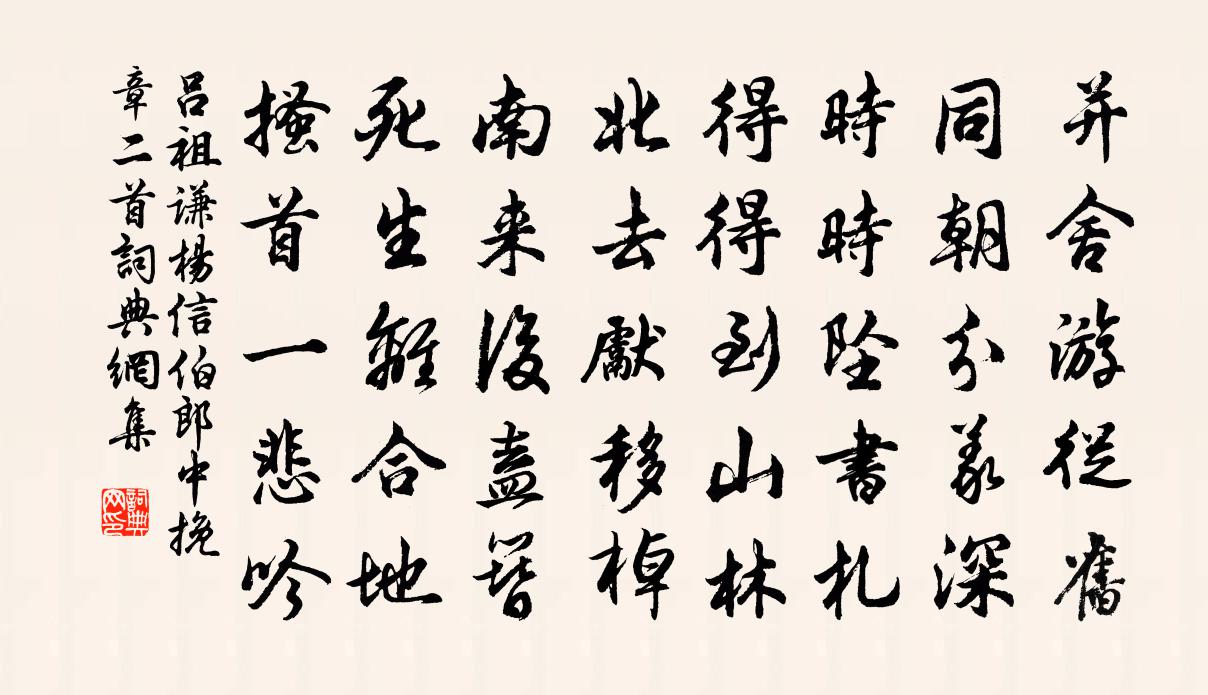 并舍游從舊
同朝分義深
時時坠書札
得得到山林
北去獻移棹
南来後盍簪
死生離合地
搔首一悲吟
呂祖謙楊信伯郎中挽
章二首詞典網集
詞典
网印